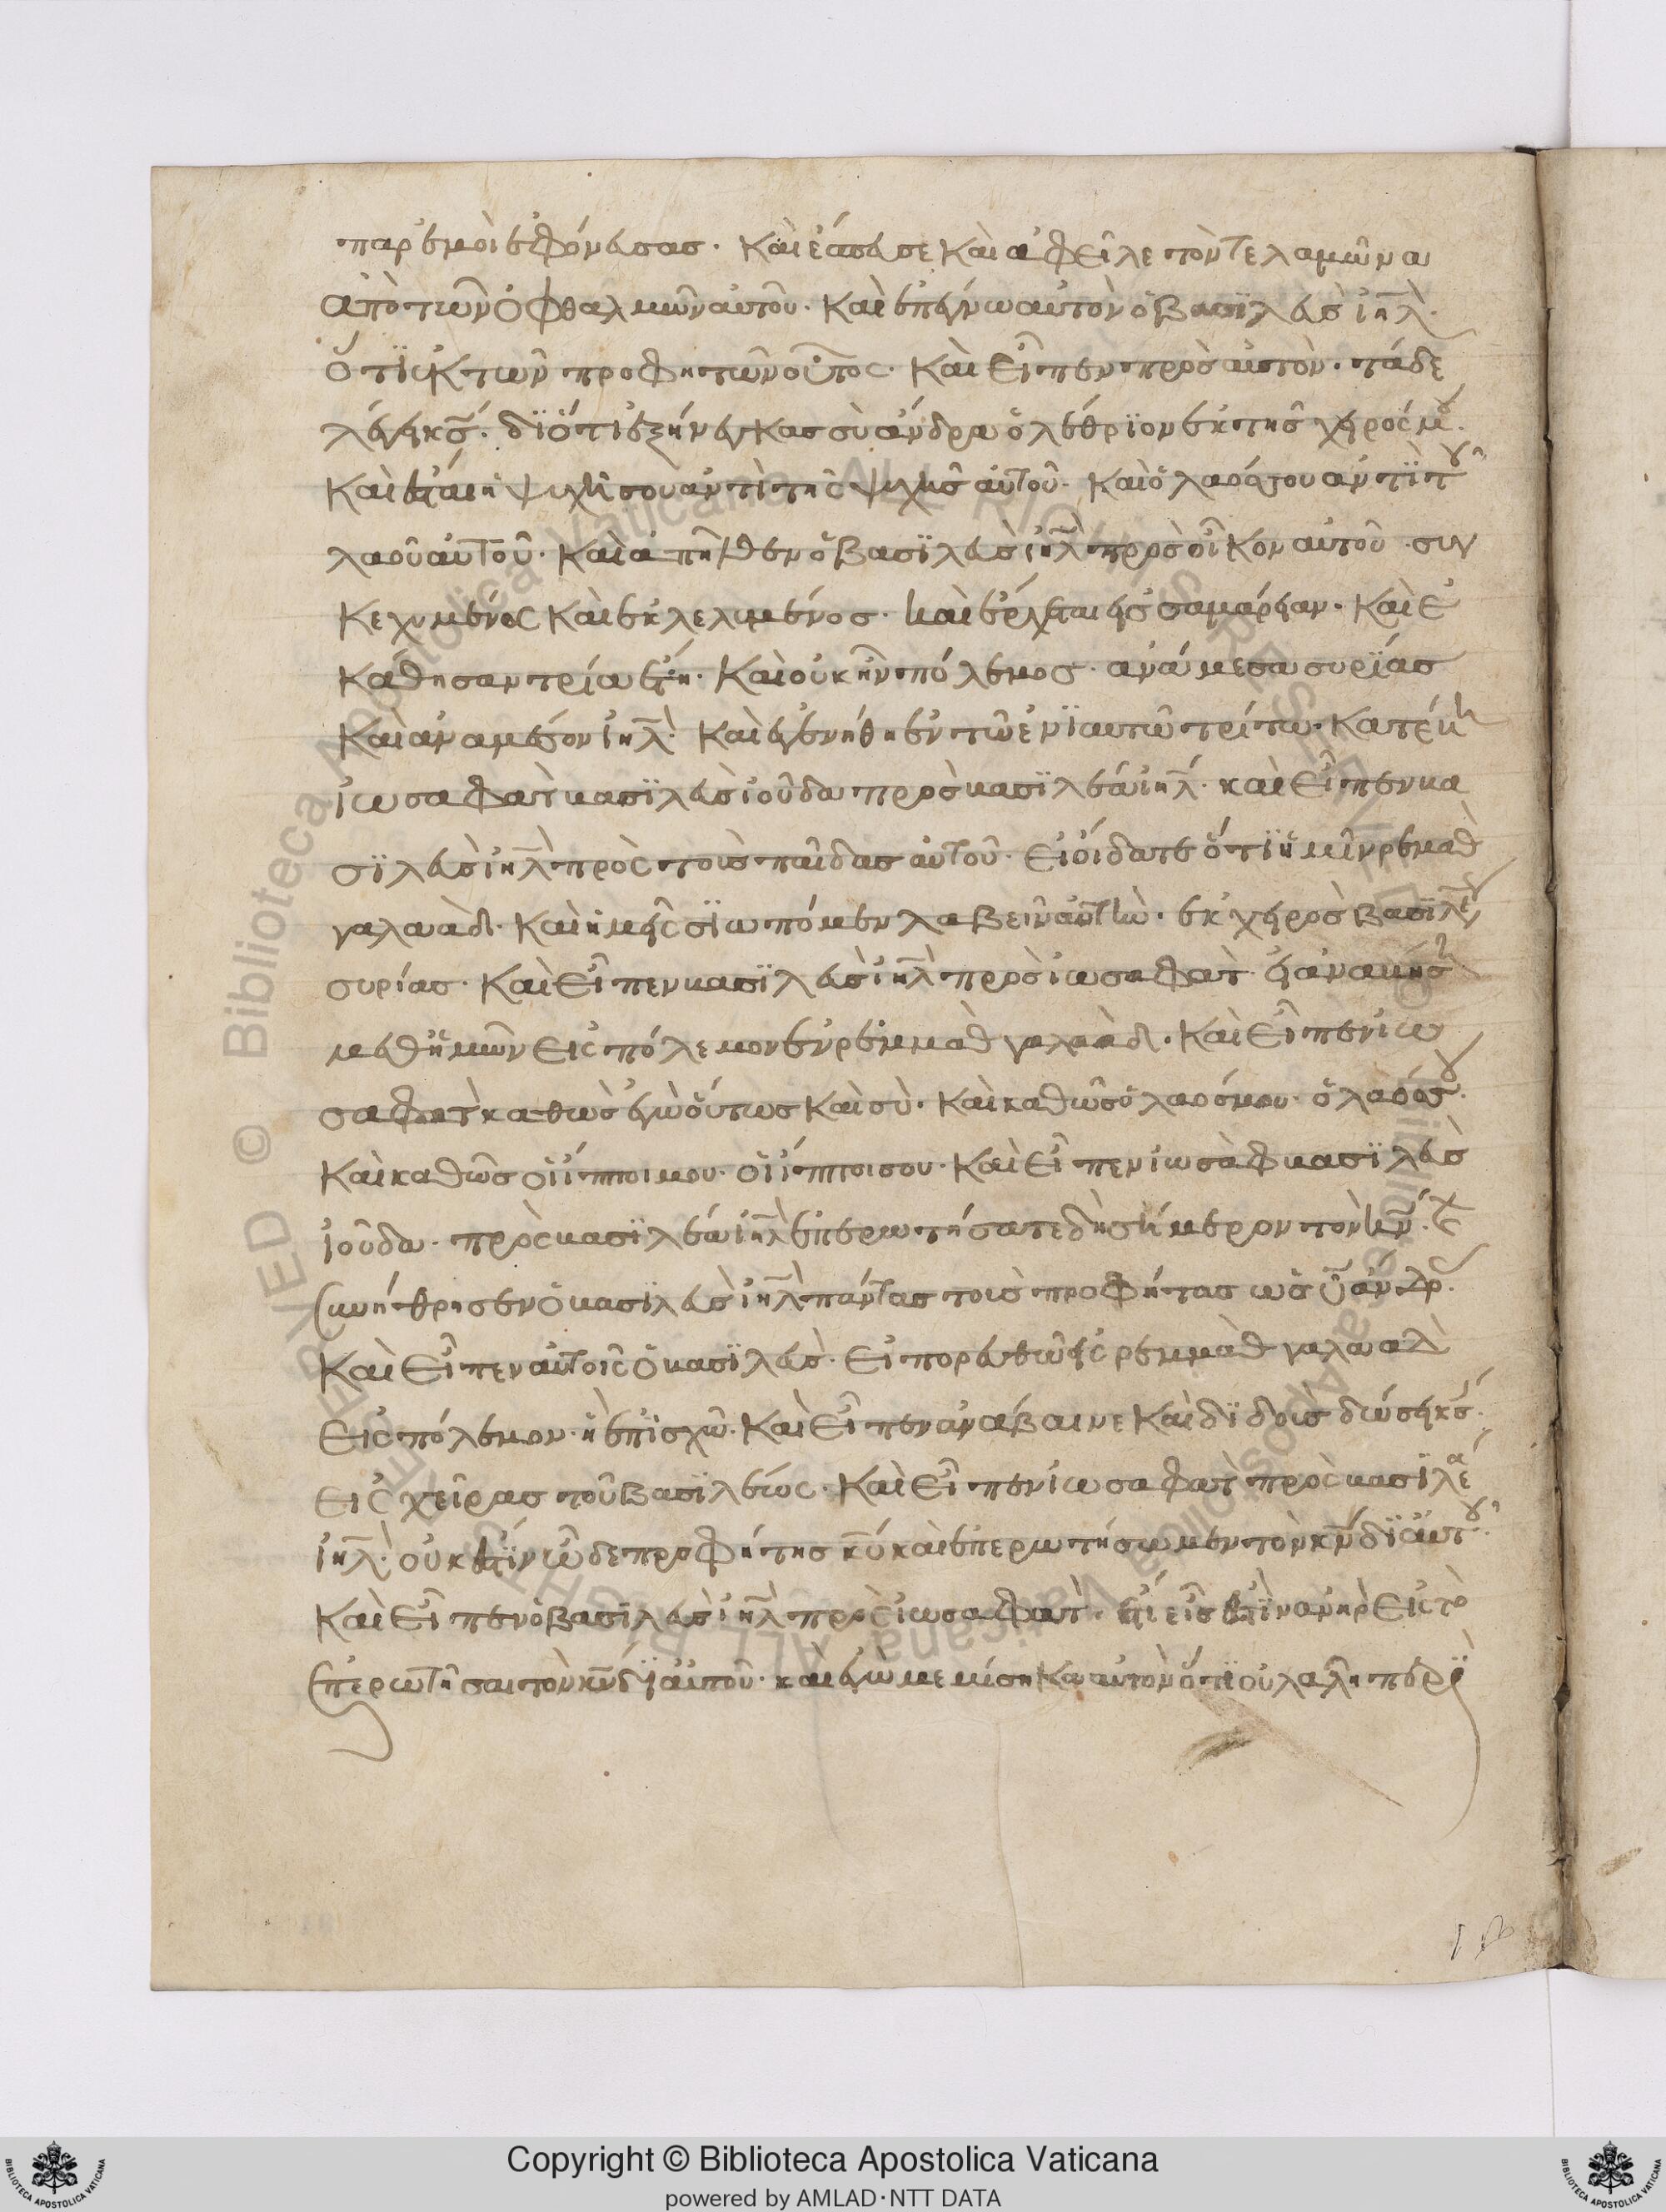 παρ' ἐμοὶ ἐφόνευσας. Καὶ ἔσπευσε καὶ ἀφεῖλε τὸν τελαμῶνα
ἀπὸ τῶν ὀφθαλμῶν αὐτοῦ. Καὶ ἐπέγνω αὐτὸν ὁ βασϊλεὺς ἰηλ̅.
ὅτϊ ἐκ τῶν προφητῶν οὗτος. Καὶ εἶπεν πρὸς αὐτὸν. τάδε
λέγει κ̅ς̅. δϊότι ἐξήνεγκας σὺ ἄνδρα ὀλέθρϊον ἐκ τῆς χειρός μου.
Καὶ ἔσται ἡ ψυχή σου ἀντὶ τῆς ψυχῆς αὐτοῦ. Καὶ ὁ λαός σου ἀντϊ τοῦ
λαοῦ αὐτοῦ. Καὶ ἀπῆλθεν ὁ βασϊλεὺς ἰηλ̅ πρὸς οἶκον αὐτοῦ. συγ
κεχυμένος καὶ ἐκλελυμένος. Καὶ ἔρχεται εἰς σαμάρειαν. Καὶ ἐ
κάθησαν τρία ἔτη. Καὶ οὐκ ἦν πόλεμος. ἀνάμεσα συρίας
Καὶ ἀναμέσον ἰηλ̅. Καὶ ἐγενήθη ἐν τῶ ἐνϊαυτῶ τρίτω. Κατέβη
ἰωσαφὰτ βασϊλεὺς ἰοῦδα πρὸς βασϊλέα ἰηλ̅. καὶ εἶπεν βα
σϊλεὺς ἰηλ̅ πρὸς τοὺς παῖδας αὐτοῦ. Εἰ οἴδατε ὅτϊ ἡμῖν ρεμὰθ
γαλαάδ. Καὶ ἡμεῖς σϊωπόμεν λαβεῖν αὐτὴν. ἐκ χειρὸς βασϊλέως
συρίας. Καὶ εἶπεν βασϊλεὺς ἰηλ̅ πρὸς ἰωσαφὰτ. εἰ ἀναβήσῃ
μεθ' ἡμῶν εἰς πόλεμον ἐν ρεμμὰθ γαλαάδ. Καὶ εἶπεν ἰω
σαφὰτ καθὼς ἐγὼ οὕτως καὶ σὺ. Καὶ καθῶς ὁ λαός μου. ὁ λαός σου.
Καὶ καθῶς οἱ ἵπποι μου. οἱ ἵπποι σου. Καὶ εἶπεν ἰωσὰφ βασϊλεὺς
ἰοῦδα. πρὸς βασϊλέα ἰηλ̅ ἐπερωτήσατε δὴ σήμερον τὸν κ̅ν̅. Καὶ
συνήθρησεν ὁ βασϊλεὺς ἰηλ̅ πάντας τοὺς προφήτας ὡς υ̅ ἄνδρας.
Καὶ εἶπεν αὐτοῖς ὁ βασϊλεὺς. Εἰ πορευθῶ εἰς ρεμμὰθ γαλαὰδ
εἰς πόλεμον. ἢ ἐπίσχω. Καὶ εἶπεν ἀνάβαινε καὶ δϊδοὺς δώσει κ̅ς̅.
εἰς χεῖρας τοῦ βασϊλέως. Καὶ εἶπεν ἰωσαφὰτ πρὸς βασϊλέα
ἰηλ̅. οὐκ ἔστϊν ὧδε προφήτης κ̅υ̅ καὶ ἐπερωτήσωμεν τὸν κ̅ν̅ δϊ' αὐτοῦ.
Καὶ εἶπεν ὁ βασϊλεὺς ἰηλ̅ πρὸς ἰωσαφὰτ. ἔτι εἷς ἔστϊν ἀνὴρ εἰς τὸ
ἐπερωτῆσαι τὸν κ̅ν̅ δϊ' αὐτοῦ. καὶ ἐγὼ μεμίσηκα αὐτὸν ὅτϊ οὐ λαλῆ περὶ
Biblioteca Apostolica Vaticana. ALL RIGHTS RESERVED ©
Copyright © Biblioteca Apostolica Vaticana
powered by AMLAD·NTT DATA